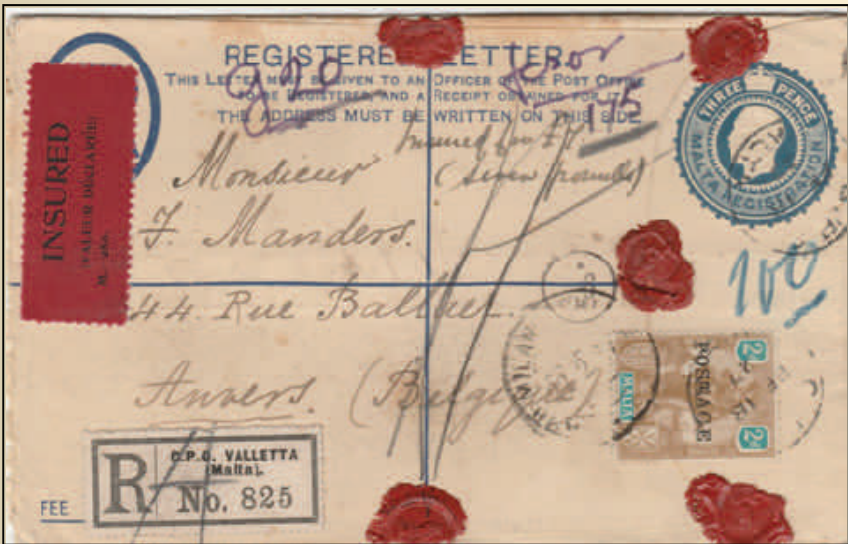 REGISTERED LETTER.
THIS LETTER MUST BE GIVEN TO AN OFFICER OF THE POST OFFICE
TO BE REGISTERED AND A RECEIPT OBTAINED FOR IT.
THE ADDRESS MUST BE WRITTEN ON THIS SIDE.
175
THREE PENCE
MALTA REGISTRATION
INSURED
VALEUR DECLAREE
Insured for £7.
(seven pounds)
Monsieur
F. Manders.
44. Rue
Anvers. (Belgique)
100
2d 2d
POSTAGE
MALTA
R
G.P.O. VALLETTA
(Malta).
No. 825
FEE